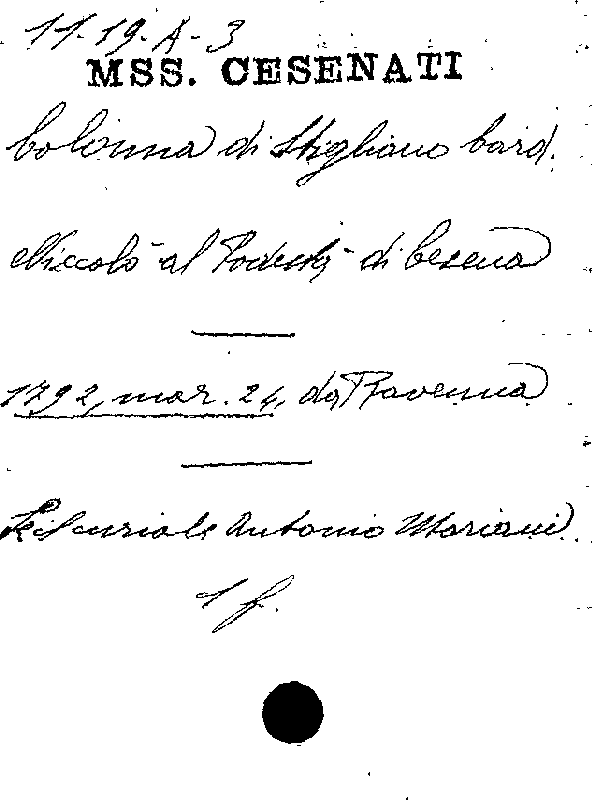 11-19-A-3
MSS. CESENATI
Colonna di Stigliano Card.
Niccolò al Podestà di Cesena
1792, mar. 24, da Ravenna
Pel curiale Antonio Mariani.
1 f.